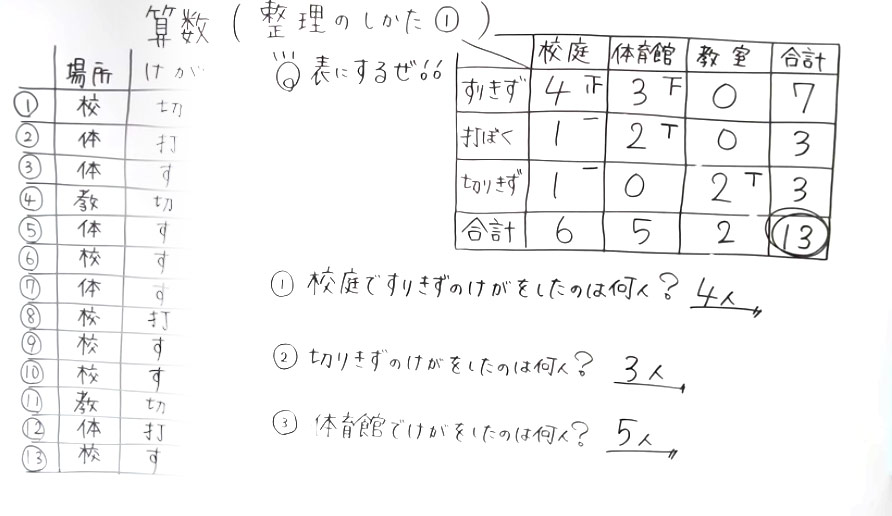 算数(整理のしかた①)
場所 けが
① 校 切
② 体 打
③ 体 す
④ 教 切
⑤ 体 す
⑥ 校 す
⑦ 体 す
⑧ 校 打
⑨ 校 す
⑩ 校 す
⑪ 教 切
⑫ 体 打
⑬ 校 す
表にするぜ!!
校庭 体育館 教室 合計
すりきず 4 正 3 下 0 7
打ぼく 1 一 2 T 0 3
切りきず 1 一 0 2 T 3
合計 6 5 2 13
① 校庭ですりきずのけがをしたのは何人? 4人
② 切りきずのけがをしたのは何人? 3人
③ 体育館でけがをしたのは何人? 5人